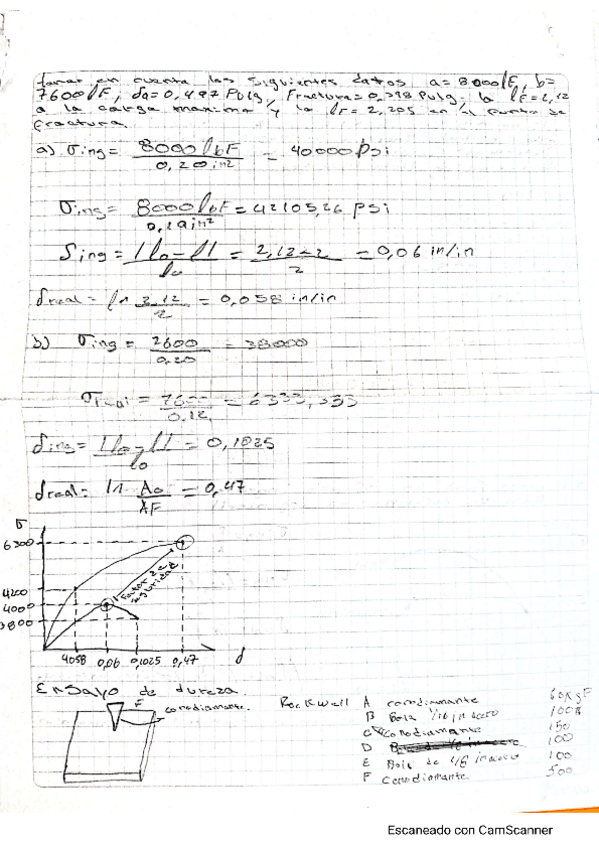 tomar en cuenta los siguientes datos a= 8000lF, b=
7600lF, da=0,497 Pulg, Fractura=0,398 Pulg, la lF=2,12
a la carga maxima y la lF=2,205 en el punto de
fractura.
a) σing= 8000lbF / 0,20 in² = 40000 Psi
σing= 8000lbF / 0,19 in² = 42105,26 psi
Sing= |lo-lf| / lo = 2,12-2 / 2 = 0,06 in/in
dreal= ln 2,12 / 2 = 0,058 in/in
b) σing = 7600 / 0,20 = 38000
= 7600 / 0.12 = 6333,333
ding= |lo-lf| / lo = 0,1025
dreal= ln Ao / AF = 0,47
σ
6300
4200
4000
3800
Factor de
seguridad
4058 0,06 0,1025 0,47 d
Ensayo de dureza.
F
conodiamante.
Rockwell A conodiamante 60KgF
B Bola 1/16 in acero 100
C Conodiamante 150
D 100
E Bola de 1/8 in acero 100
F conodiamante 500
Escaneado con CamScanner